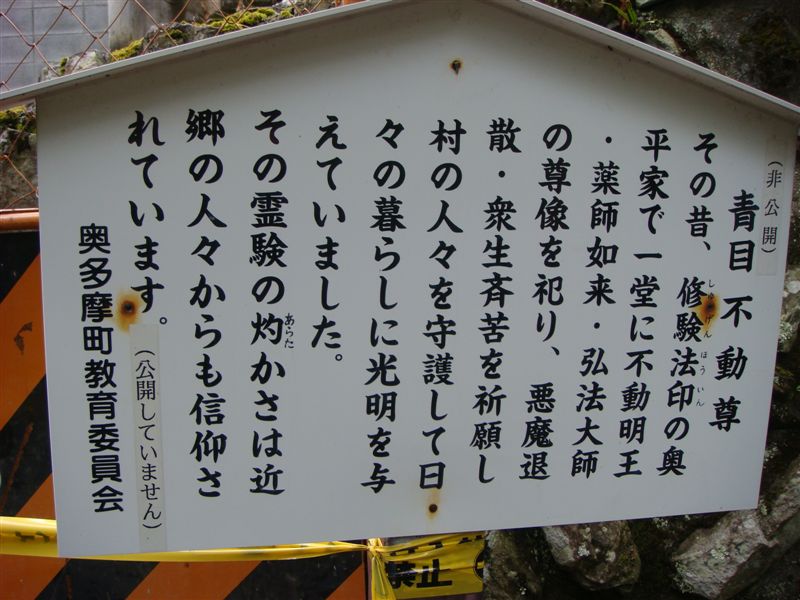 （非公開）
青目不動尊
その昔、修験法印の奥
しゅげん ほういん
平家で一堂に不動明王
・薬師如来・弘法大師
の尊像を祀り、悪魔退
散・衆生斉苦を祈願し
村の人々を守護して日
々の暮らしに光明を与
えていました。
その霊験の灼かさは近
あらた
郷の人々からも信仰さ
れています。
（公開していません）
奥多摩町教育委員会
禁止